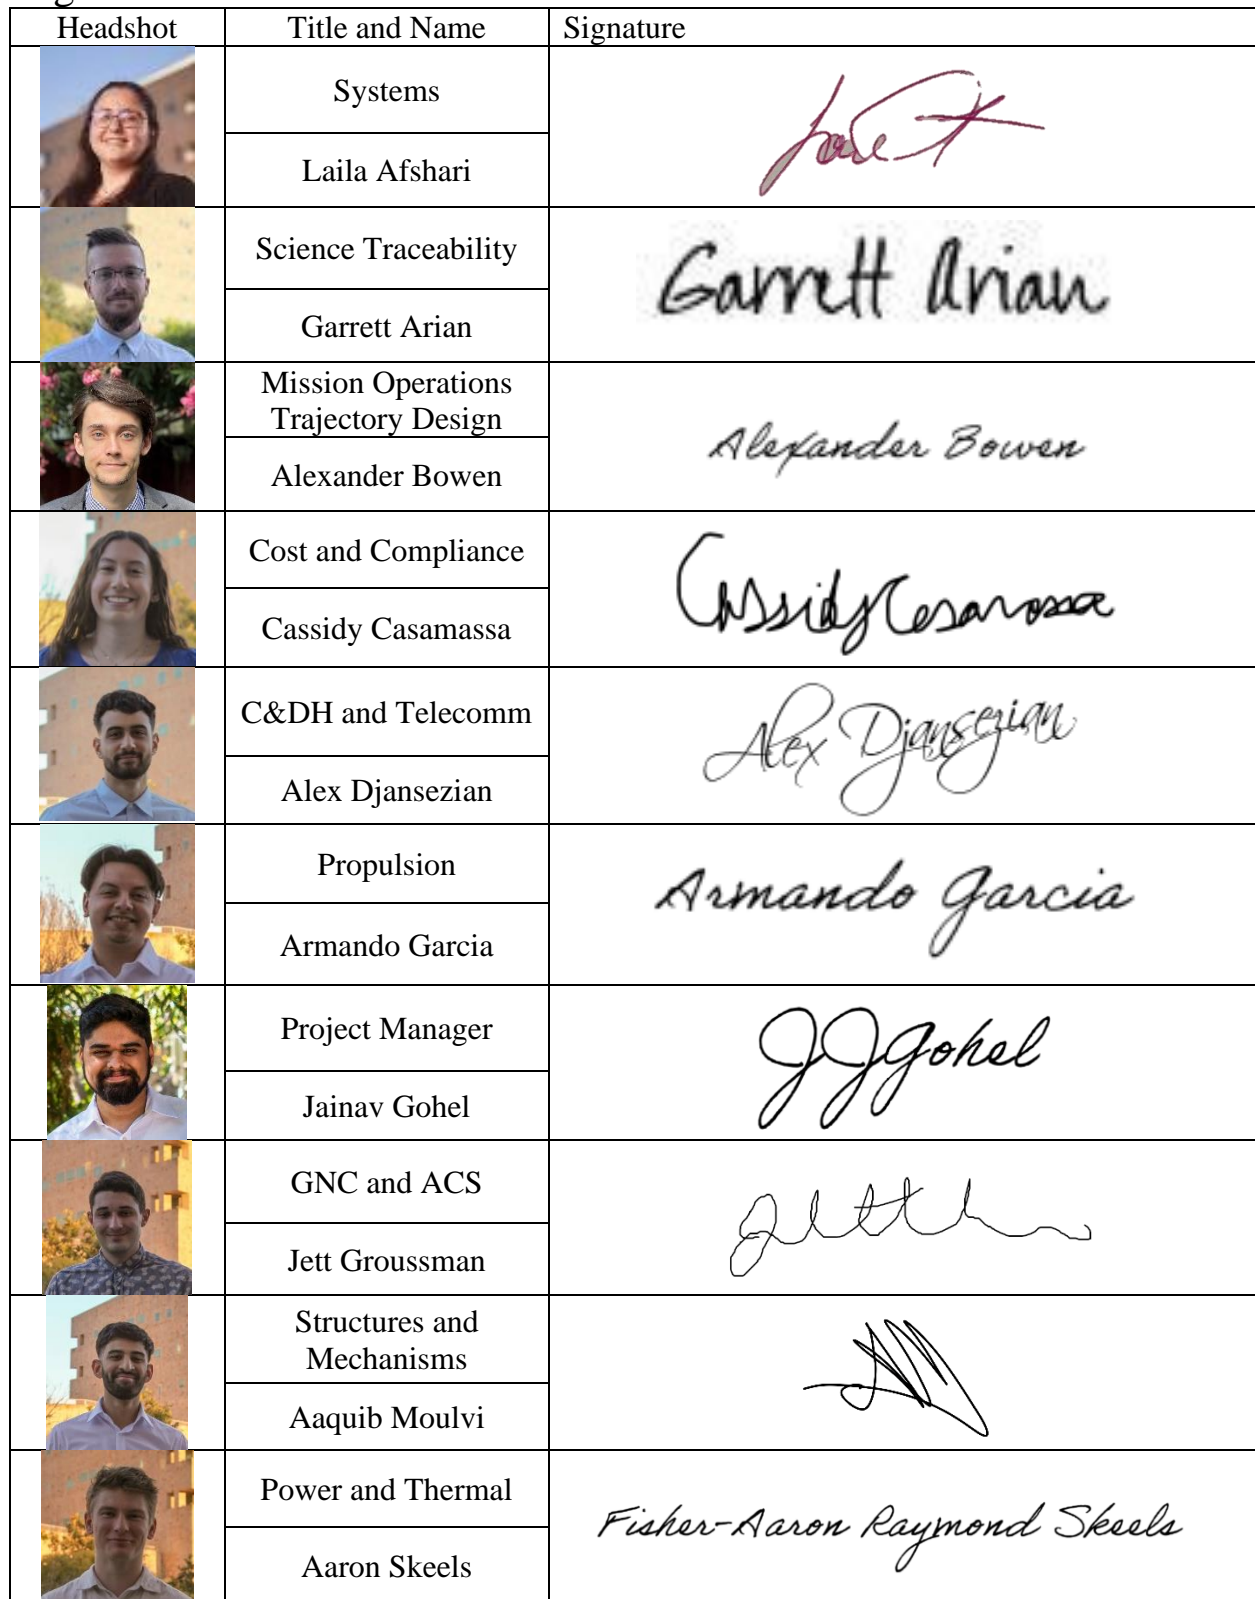 Headshot Title and Name Signature
Systems
Laila Afshari
Science Traceability
Garrett Arian
Garrett Arian
Mission Operations
Trajectory Design
Alexander Bowen
Alexander Bowen
Cost and Compliance
Cassidy Casamassa
C&DH and Telecomm
Alex Djansezian
Alex Djansezian
Propulsion
Armando Garcia
Armando Garcia
Project Manager
JJGohel
Jainav Gohel
GNC and ACS
Jett Groussman
Structures and
Mechanisms
Aaquib Moulvi
Power and Thermal
Fisher-Aaron Raymond Skeels
Aaron Skeels